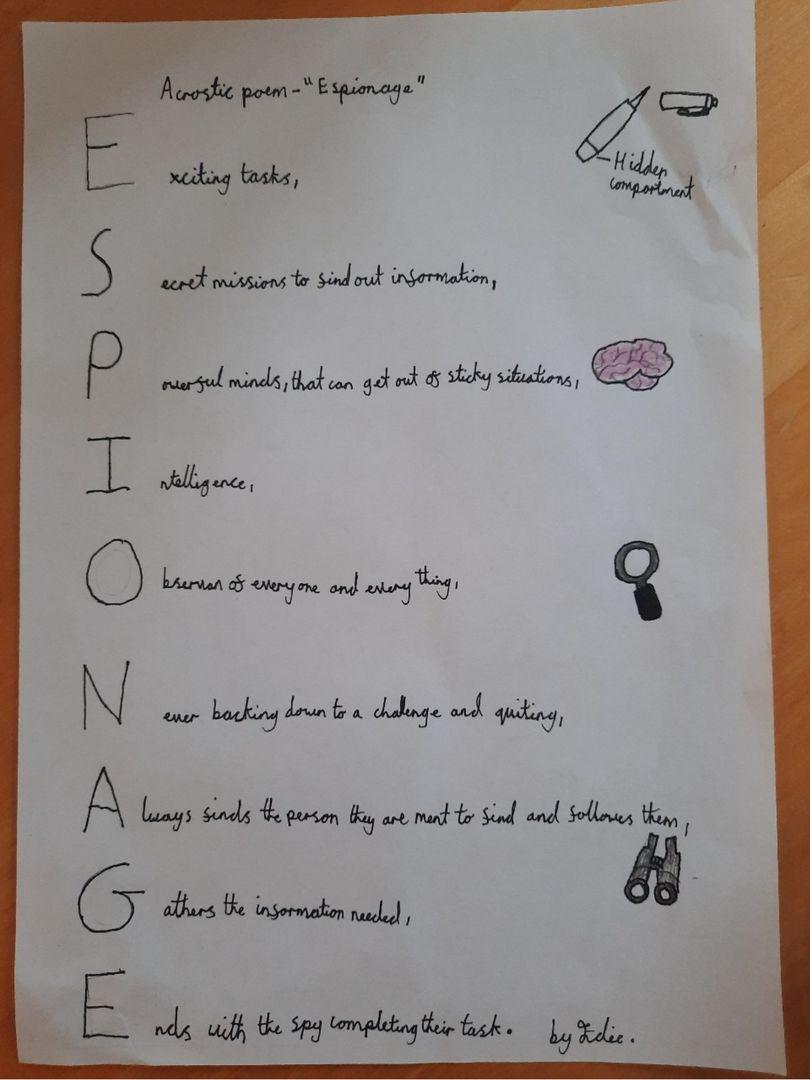 Acrostic poem - "Espionage"
Hidden
compartment
Exciting tasks,
Secret missions to find out information,
Powerful minds, that can get out of sticky situations,
Intelligence,
Observan of everyone and every thing,
Never backing down to a challenge and quiting,
Always finds the person they are ment to find and follows them,
Gathers the information needed,
Ends with the spy completing their task. by Edie.